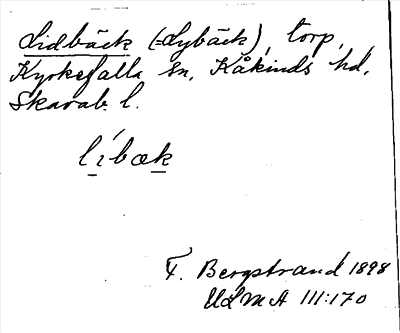 Lidbäck (=Lybäck), torp,
Kyrkefalla sn, Kåkinds hd,
Skarab. l.
lìbæk
F. Bergstrand 1898
ULMA 111:170